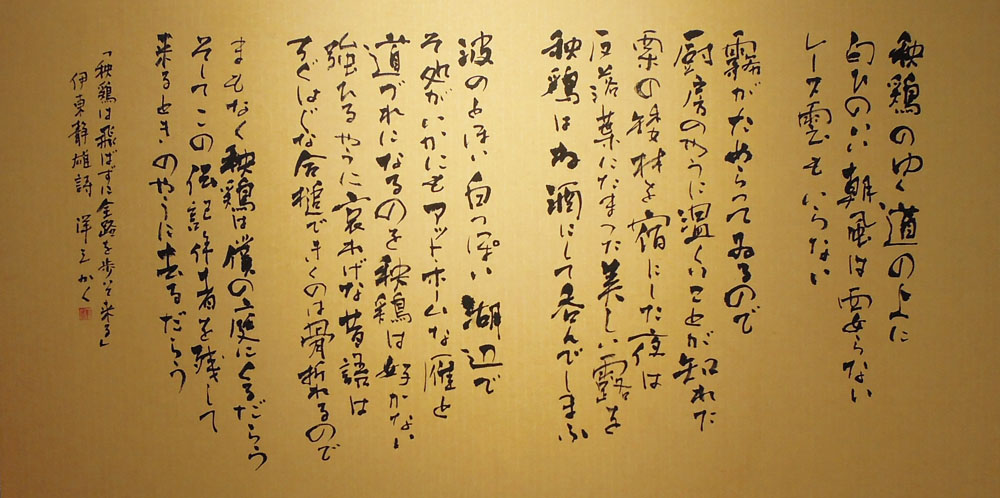 秧鶏のゆく道の上に
匂ひのいい朝風は要らない
レース雲もいらない
霧がためらつてゐるので
厨房のやうに温くいことが知れた
栗の矮林を宿にした夜は
反落葉にたまつた美しい露を
秧鶏はね酒にして呑んでしまふ
波のとほい 白つぽい湖辺で
そ処がいかにもアットホームな雁と
道づれになるのを秧鶏は好かない
強ひるやうに哀れげな昔語は
ちぐはぐな合槌できくのは骨折れるので
まもなく秧鶏は僕の庭にくるだらう
そしてこの伝記作者を残して
来るときのやうに去るだらう
「秧鶏は飛ばずに全路を歩いて来る」
伊東静雄詩 洋三かく